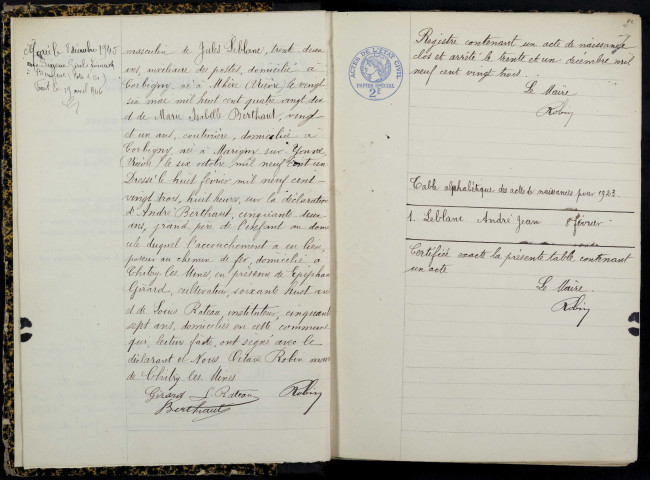 Marié le 8 décembre 1945
à
le 19 avril 1946
masculin de Jules Leblanc, trente deux
ans, auxiliaire des postes, domicilié à
Corbigny, né à Mhère (Nièvre) le vingt
six mai mil huit cent quatre vingt dix
et de Marie Isabelle Berthaut, vingt
et un ans, couturière, domiciliée à
Corbigny, née à Marigny sur Yonne,
(Nièvre) le six octobre mil neuf cent un
Dressé le huit février mil neuf cent
vingt trois, huit heures, sur la déclaration
d'André Berthaut, cinquante deux
ans, grand père de l'enfant au domi
cile duquel l'accouchement a eu lieu,
poseur au chemin de fer, domicilié à
Chitry les Mines, en présence de Epiphane
Girard, cultivateur, soixante huit ans
et de Louis Rateau, instituteur, cinquante
sept ans, domiciliés en cette commune
qui, lecture faite, ont signé avec le
déclarant et Nous, Octave Robin maire
de Chitry les Mines
Girard L Rateau Robin
Berthaut
ACTES DE L'ÉTAT CIVIL
PAPIER SPÉCIAL
2F
Registre contenant un acte de naissance
clos et arrêté le trente et un décembre mil
neuf cent vingt trois.
Le Maire
Robin
Table alphabétique des actes de naissances pour 1923
1. Leblanc André Jean 8 février
Certifiée exacte la présente table contenant
un acte
Le Maire
Robin